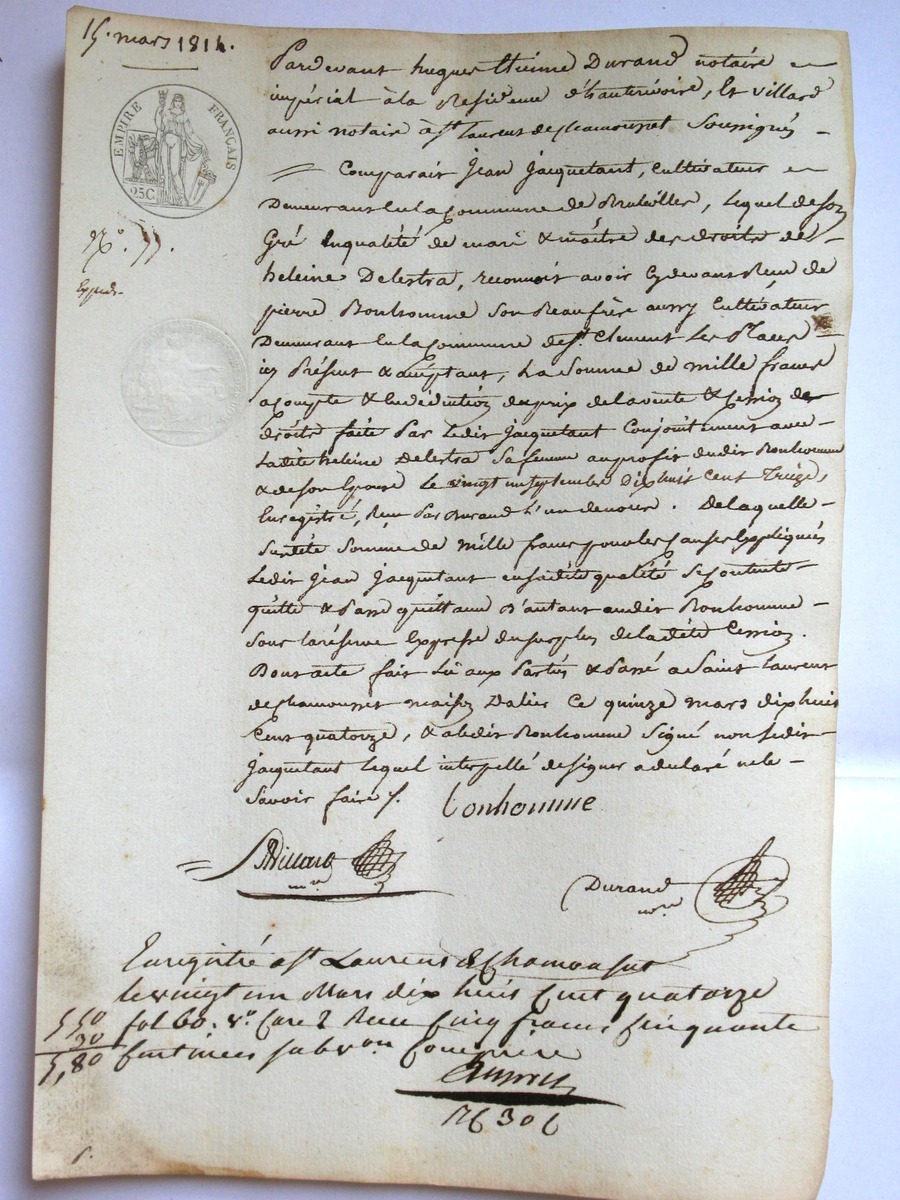 15. mars 1814.
EMPIRE FRANÇAIS
25C.
N.o 55.
Expedé.
Pardevant hugues Etienne Durand notaire
impérial à la Residence d'hauterivoire, Et Villard
aussi notaire à St. Laurent de Chamousset Soussignés
Comparait Jean Jacquetant, Cultivateur
Demeurant En la Commune de Brulaillles, lequel de Son
Gré Enqualité de mari & maitre des droits de
heleine Delestra, reconnoit avoir Cydevant Reçu de
pierre Bonhomme Son Beaufrère aussy Cultivateur
Demeurant En la Commune de St. Clement Les Places
icy Présent & acceptant, La Somme de mille francs
acompte & En déduction du prix de la vente & Cession de
droits faite Par Ledit Jacquetant Conjointement avec
Ladite heleine Delestra Sa femme au profit dudit Bonhomme
& de son Epouse Le vingt un Septembre Dix huit Cent Treize,
Enregistré, Reçu Par Durand L'un de nous. De laquelle
Susdite Somme de mille francs pour les causes Expliquées
Ledit Jean Jacquetant en sadite qualité Se contente
quitte & Passe quittance D'autant audit Bonhomme
Sous la réserve Expresse du surplus de ladite Cession.
Dont acte fait Lû aux Parties & Passé a Saint Laurent
de Chamousset maison Dalier Ce quinze mars dix huit
Cent quatorze, & a ledit Bonhomme Signé non Ledit
Jacquetant lequel interpellé de signer a declaré ne le
Savoir faire /.
bonhomme
Villard
nre
Durand
nre
Enregistré a St Laurent de Chamousset
le vingt un Mars dix huit Cent quatorze
fol 60. vo. Case 2 Reçu Cinq francs Cinquante
Centimes subvon. Comprise
5,50
30
5,80